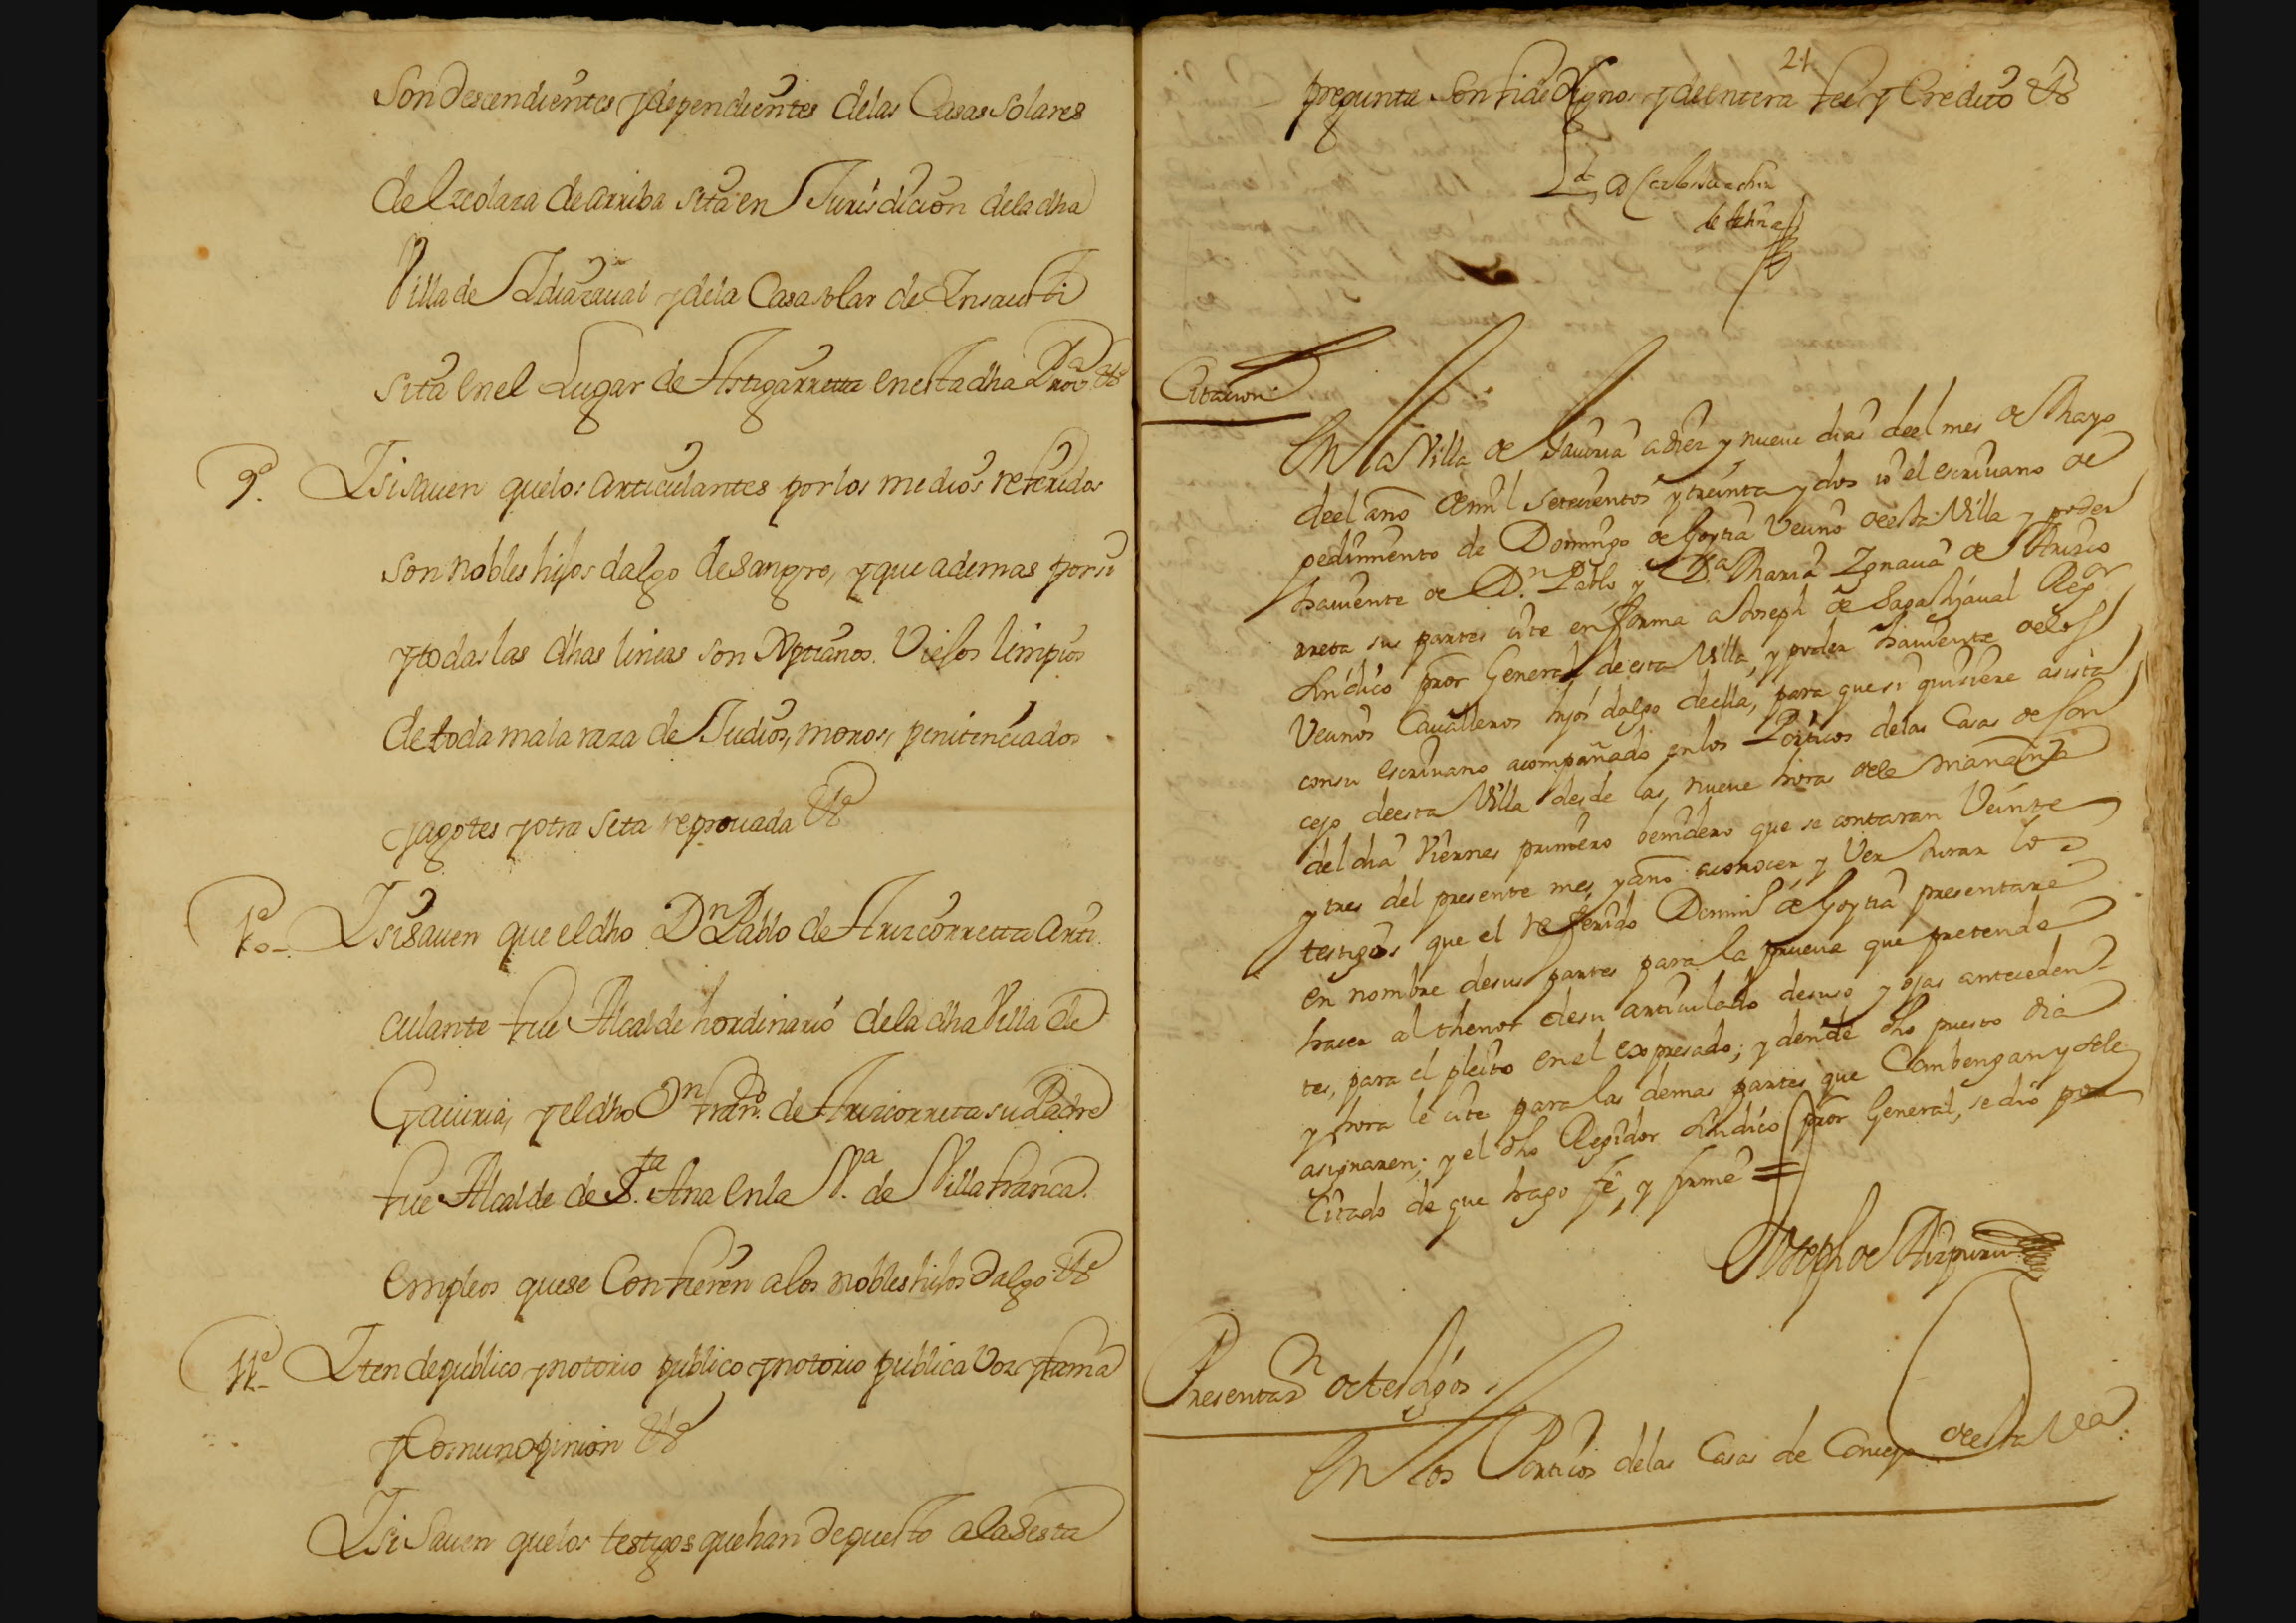 Son descendientes y dependientes delas Casas Solares
de Izcolaza de arriba sita en Jurisdicion dela dha
Villa de Idiazaual y dela Casa solar de Insausti
sita en el Lugar de Astigarreta en esta dha Prov.ª &ª
9ª. Y si sauen quelos articulantes por los medios referidos
son nobles hijos dalgo de sangre, y que ademas por si
y todas las dhas lineas son Xptianos Viejos limpios
de toda mala raza de Judios, moros, penitenciados
y agotes y otra seta reprouada &ª
10ª Y si sauen que el dho Dn Pablo de Arizcorreta arti-
culante fue Alcalde hordinario dela dha Villa de
Gauiria, y el dho Dn Fran.co de Arizcorreta su Padre
fue Alcalde de S.ta Ana en la V.a de Villafranca
Empleos que se Confieren a los nobles hijos dalgo &ª
11ª Yten de publico y notorio publico y notorio publica voz y fama
y Comun opinion &ª
Y si Sauen quelos testigos que han depuesto a la sesta
21
pregunta son fidedignos y de entera fee y Credito &ª
Citacion
En la Villa de Gauiria a diez y nueue dias deel mes de Mayo
deel año de mil setecientos y treinta y dos io el escriuano de
pedimiento de Domingo de Goytia Vecino de esta Villa y poder
hauiente de D.n Pablo y D.a Maria Ignacia de Arizco
rreta sus partes cite en forma a Joseph de Sagastizaual Reg.or
Sindico pror General de esta Villa, y poder hauiente de los
Vecinos Caualleros hijos dalgo de ella, para que si quisiere asista
con su escriuano acompañado en los Porticos delas Casas de Con
cejo de esta Villa desde las nueue horas de la mañana
del dia Viernes primero benidero que se contaran Veinte
y tres del presente mes, y año a conocer y Ver Jurar los
testigos que el referido Domin.o de Goytia presentare
en nombre de sus partes para la prueua que pretende
hacer al thenor de su articulado de suso y ojas anteceden-
tes, para el pleito en el expresado; y dende dho puesto dia
y hora le cite para las demas partes que Combengan y sele
asignaren; y el dho Regidor Sindico pror General, se dio por
Citado de que hago fe, y firme =
Joseph de Aizpuru
Presentaz.n de testigos.
En los Porticos delas Casas de Concejo de esta V.a